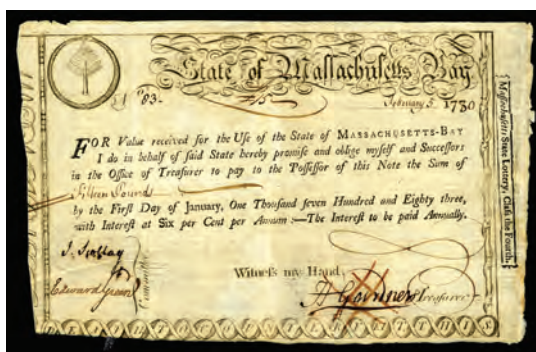 State of Massachusetts Bay
83.
February 5. 1780
FOR Value received for the Use of the State of MASSACHUSETTS-BAY
I do in behalf of said State hereby promise and oblige myself and Successors
in the Office of Treasurer to pay to the Possessor of this Note the Sum of
Fifteen Pounds
by the First Day of January, One Thousand seven Hundred and Eighty three,
with Interest at Six per Cent per Annum :—The Interest to be paid Annually.
Committee
Witness my Hand,
H Gardner Treasurer
Massachusetts State Lottery, Class the Fourth.